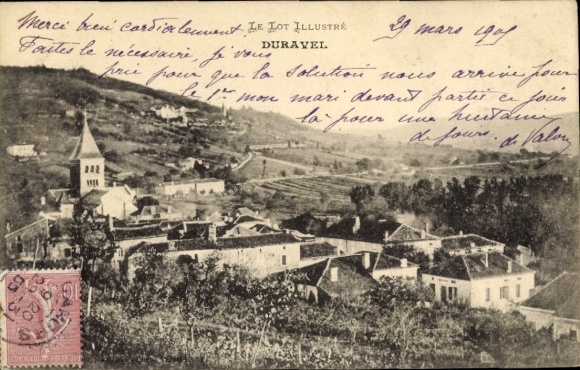 LE LOT ILLUSTRÉ
DURAVEL
29 mars 1905
Merci bien cordialement
Faites le nécessaire, je vous
prie pour que la solution nous arrive pour
le 1er mon mari devant partir ce jour
là pour une huitaine
de jours. de Valon
CAHORS